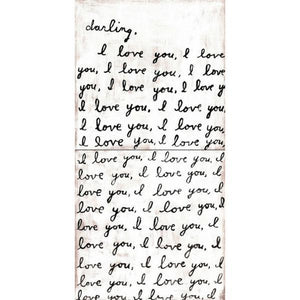 darling,
I love you, I love
you, I love you, I love
you, I love you, I love you,
I love you, I love you, I
love you, I love you, I
love you, I love you,
I love you, I love you, I
love you, I love you, I
love you, I love you, I
love you, I love you,
I love you, I love you,
I love you, I love you,
love you, I love you,
I love you, I love you,
love you, I love you, I
love you, I love you, I